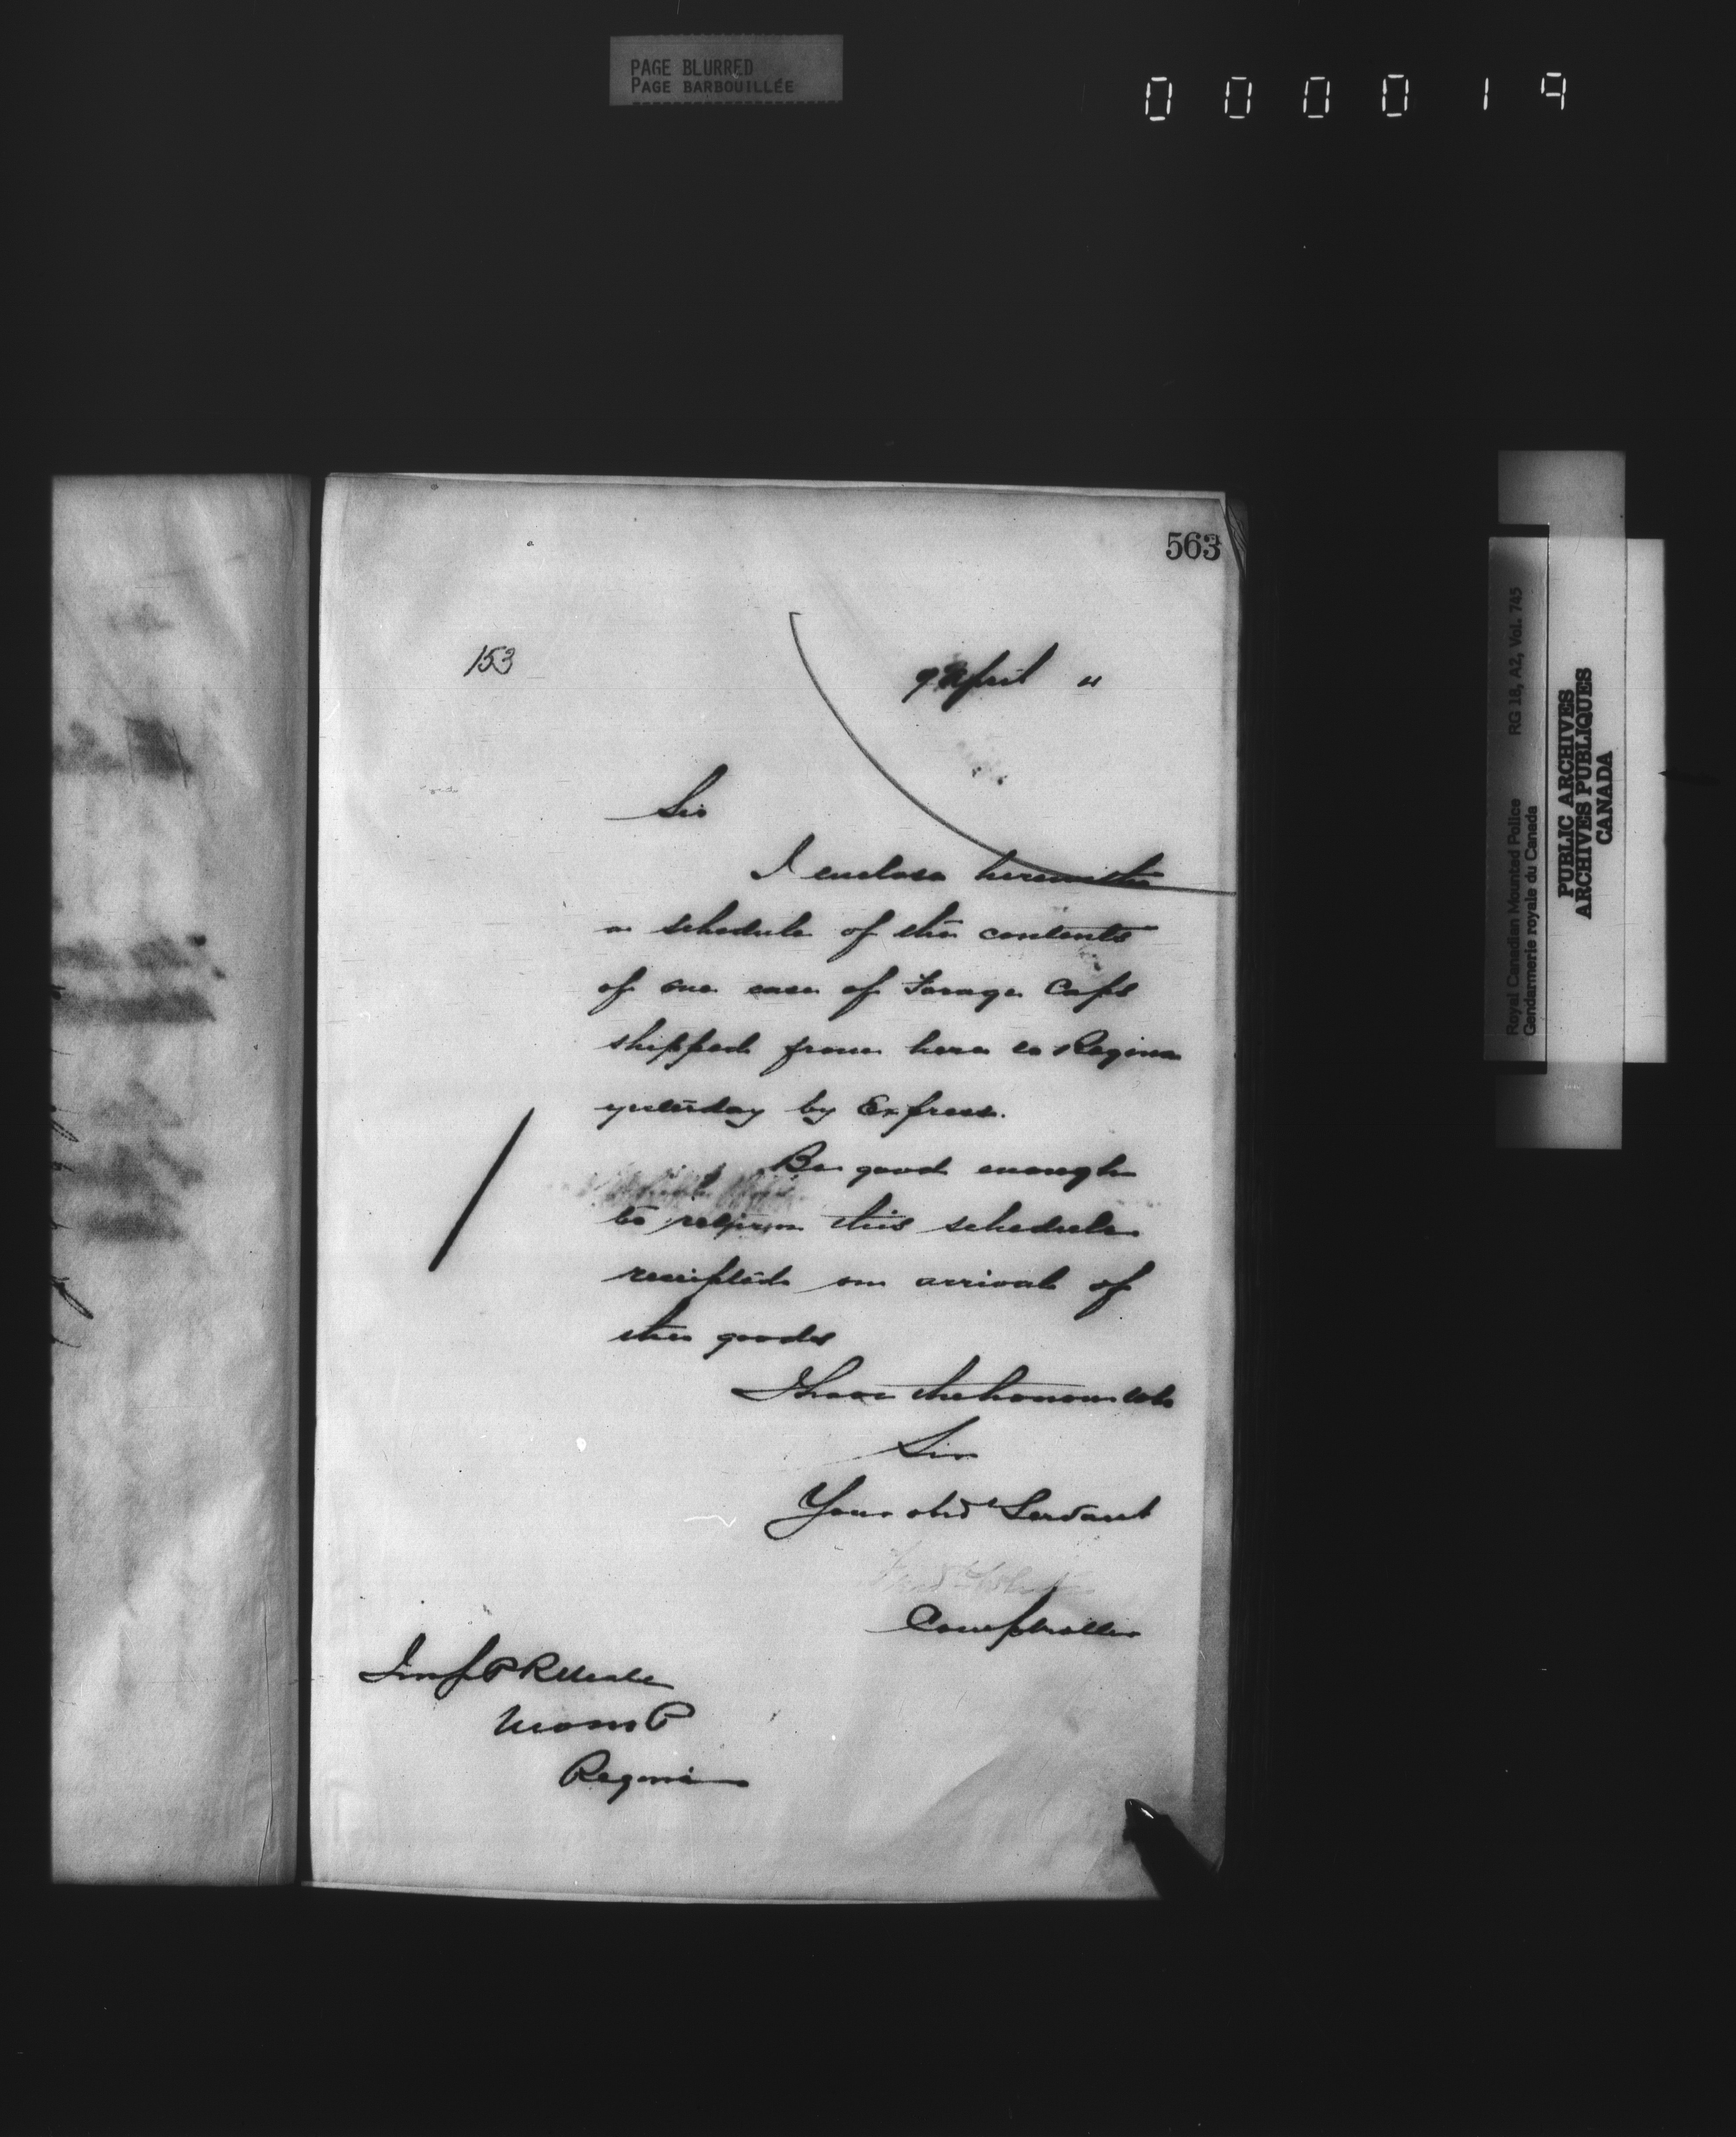 PAGE BLURRED
PAGE BARBOUILLÉE
000019
563
153
9 April "
Sir
I enclose herewith
a schedule of the contents
of one case of Forage Caps
shipped from here to Regina
yesterday by Express.
Be good enough
to return this schedule
receipted on arrival of
the goods
I have the honour to be
Sir
Your obdt Servant
Fred White
Comptroller
Insp P R Neale
NWMP
Regina
Royal Canadian Mounted Police RG 18, A2, Vol. 745
Gendarmerie royale du Canada
PUBLIC ARCHIVES
ARCHIVES PUBLIQUES
CANADA